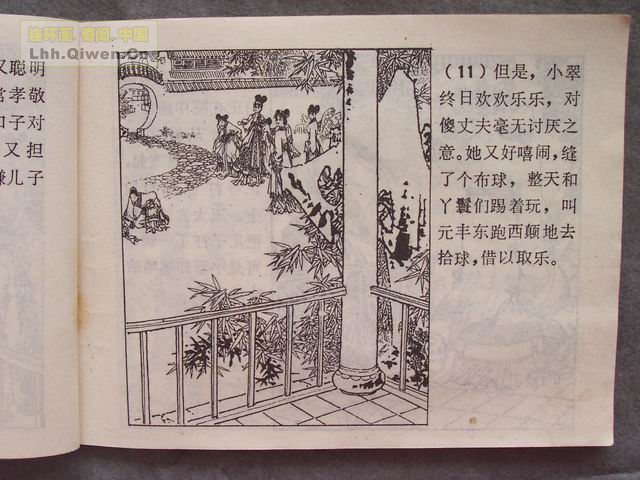 连环画.奇闻.中国
Lhh.Qiwen.Cn
又聪明
常孝敬
子对
又担
嫌儿子
（11）但是，小翠
终日欢欢乐乐，对
傻丈夫毫无讨厌之
意。她又好嘻闹，缝
了个布球，整天和
丫鬟们踢着玩，叫
元丰东跑西颠地去
拾球，借以取乐。